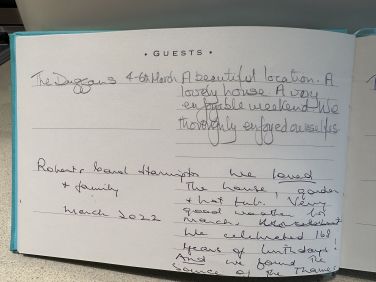 • GUESTS •
The Duggans 4-6th March A beautiful location. A
lovely house. A very
enjoyable weekend. We
thoroughly enjoyed ourselves
Robert & Carol Hampton We loved
& family The house, garden
& hot tub. Very
March 2022 good weather for
March.
We celebrated 168
years of birthdays!
And we found the
Source of the Thames